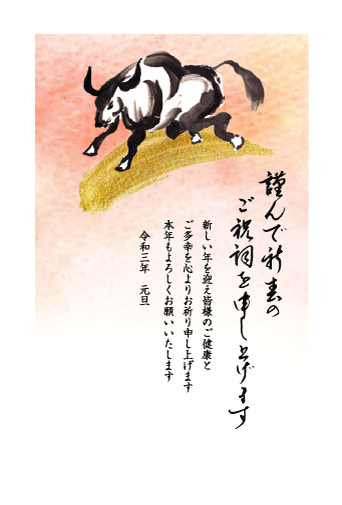 謹んで新春の
ご祝詞を申し上げます
新しい年を迎え皆様のご健康と
ご多幸を心よりお祈り申し上げます
本年もよろしくお願いいたします
令和三年　元旦